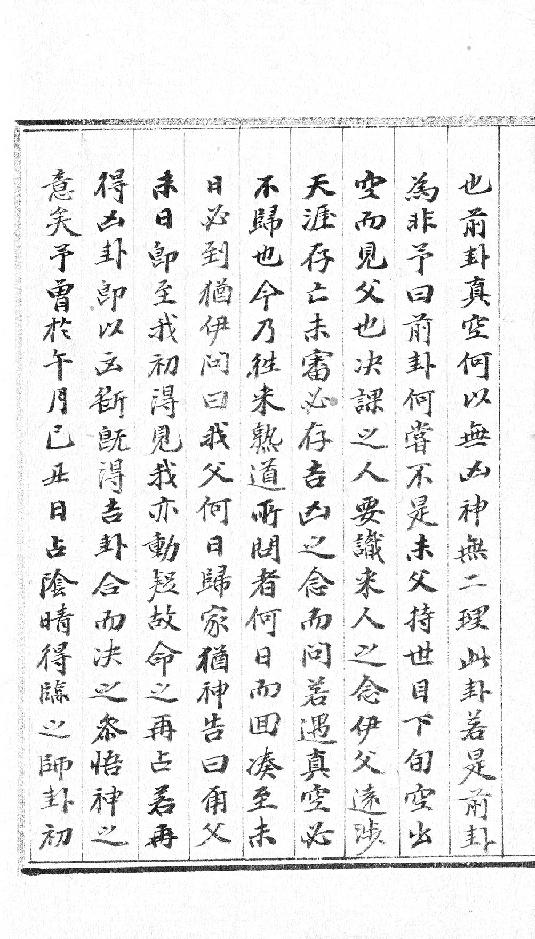 也前卦真空何以無凶神無二理此卦若是前卦
為非予曰前卦何嘗不是未父持世目下旬空出
空而見父也决課之人要識來人之念伊父遠涉
天涯存亡未審必存吉凶之念而問若遇真空必
不歸也今乃徃来熟道所問者何日而囬凑至未
日必到猶伊问曰我父何日歸家猶神告曰甭父
未日即至我初得見我亦動疑故命之再占若再
得凶卦即以凶断既得吉卦合而决之叅悟神之
意矣予曽扵午月己丑日占陰晴得臨之師卦初